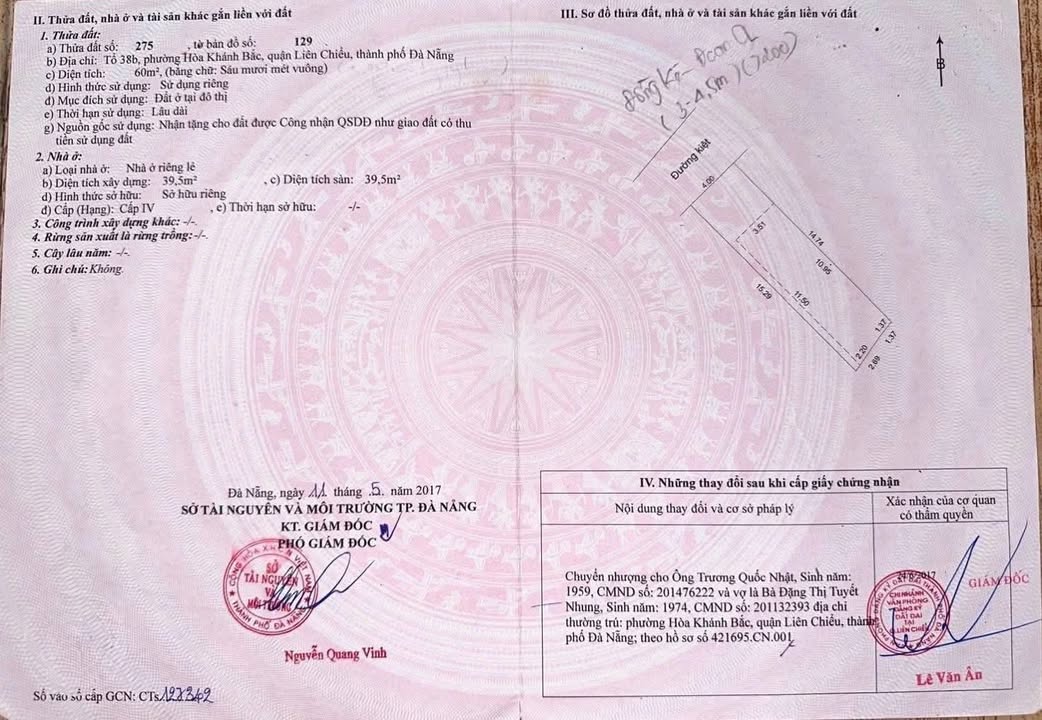 II. Thửa đất, nhà ở và tài sản khác gắn liền với đất
1. Thửa đất:
a) Thửa đất số: 275 , tờ bản đồ số: 129
b) Địa chỉ: Tổ 38b, phường Hòa Khánh Bắc, quận Liên Chiểu, thành phố Đà Nẵng
c) Diện tích: 60m², (bằng chữ: Sáu mươi mét vuông)
d) Hình thức sử dụng: Sử dụng riêng
đ) Mục đích sử dụng: Đất ở tại đô thị
e) Thời hạn sử dụng: Lâu dài
g) Nguồn gốc sử dụng: Nhận tặng cho đất được Công nhận QSDĐ như giao đất có thu
tiền sử dụng đất
2. Nhà ở:
a) Loại nhà ở: Nhà ở riêng lẻ
b) Diện tích xây dựng: 39,5m² , c) Diện tích sàn: 39,5m²
d) Hình thức sở hữu: Sở hữu riêng
đ) Cấp (Hạng): Cấp IV , e) Thời hạn sở hữu: -/-
3. Công trình xây dựng khác: -/-.
4. Rừng sản xuất là rừng trồng:-/-.
5. Cây lâu năm: -/-.
6. Ghi chú: Không.
Đà Nẵng, ngày 11 tháng .5. năm 2017
SỞ TÀI NGUYÊN VÀ MÔI TRƯỜNG TP. ĐÀ NẴNG
KT. GIÁM ĐỐC
PHÓ GIÁM ĐỐC
SỞ
TÀI NGUYÊN
VÀ
MÔI TRƯỜNG
THÀNH PHỐ ĐÀ NẴNG
Nguyễn Quang Vinh
Số vào sổ cấp GCN: CTs
III. Sơ đồ thửa đất, nhà ở và tài sản khác gắn liền với đất
B
(3-4,5m)
Đường kiệt
4.00
3.51
14.74
10.95
15.29
11.50
1.37
1.37
2.20
2.69
IV. Những thay đổi sau khi cấp giấy chứng nhận
Nội dung thay đổi và cơ sở pháp lý
Xác nhận của cơ quan
có thẩm quyền
Chuyển nhượng cho Ông Trương Quốc Nhật, Sinh năm:
1959, CMND số: 201476222 và vợ là Bà Đặng Thị Tuyết
Nhung, Sinh năm: 1974, CMND số: 201132393 địa chỉ
thường trú: phường Hòa Khánh Bắc, quận Liên Chiểu, thành
phố Đà Nẵng; theo hồ sơ số 421695.CN.001
GIÁM ĐỐC
CHI NHÁNH
VĂN PHÒNG
ĐĂNG KÝ
ĐẤT ĐAI
TẠI
Q.LIÊN CHIỂU
Lê Văn Ân